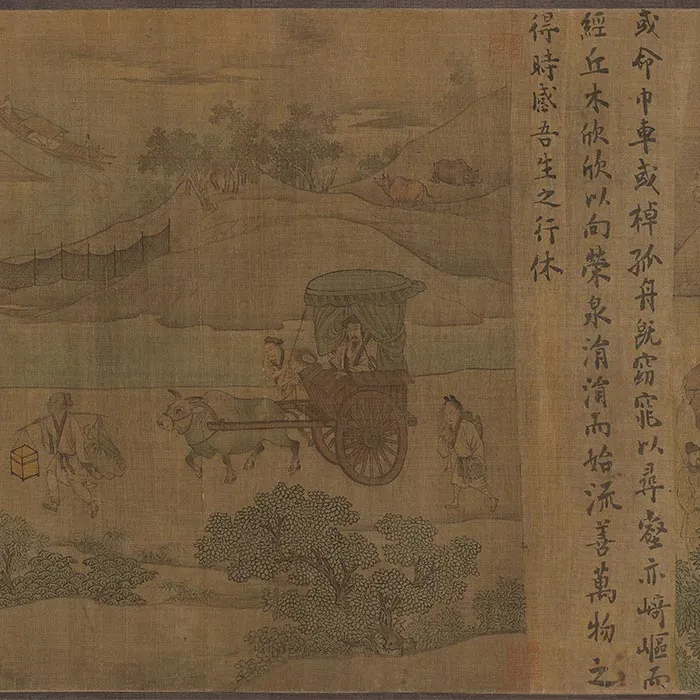 或命巾車或棹孤舟既窈窕以尋壑亦崎嶇而
經丘木欣欣以向榮泉涓涓而始流善萬物之
得時感吾生之行休